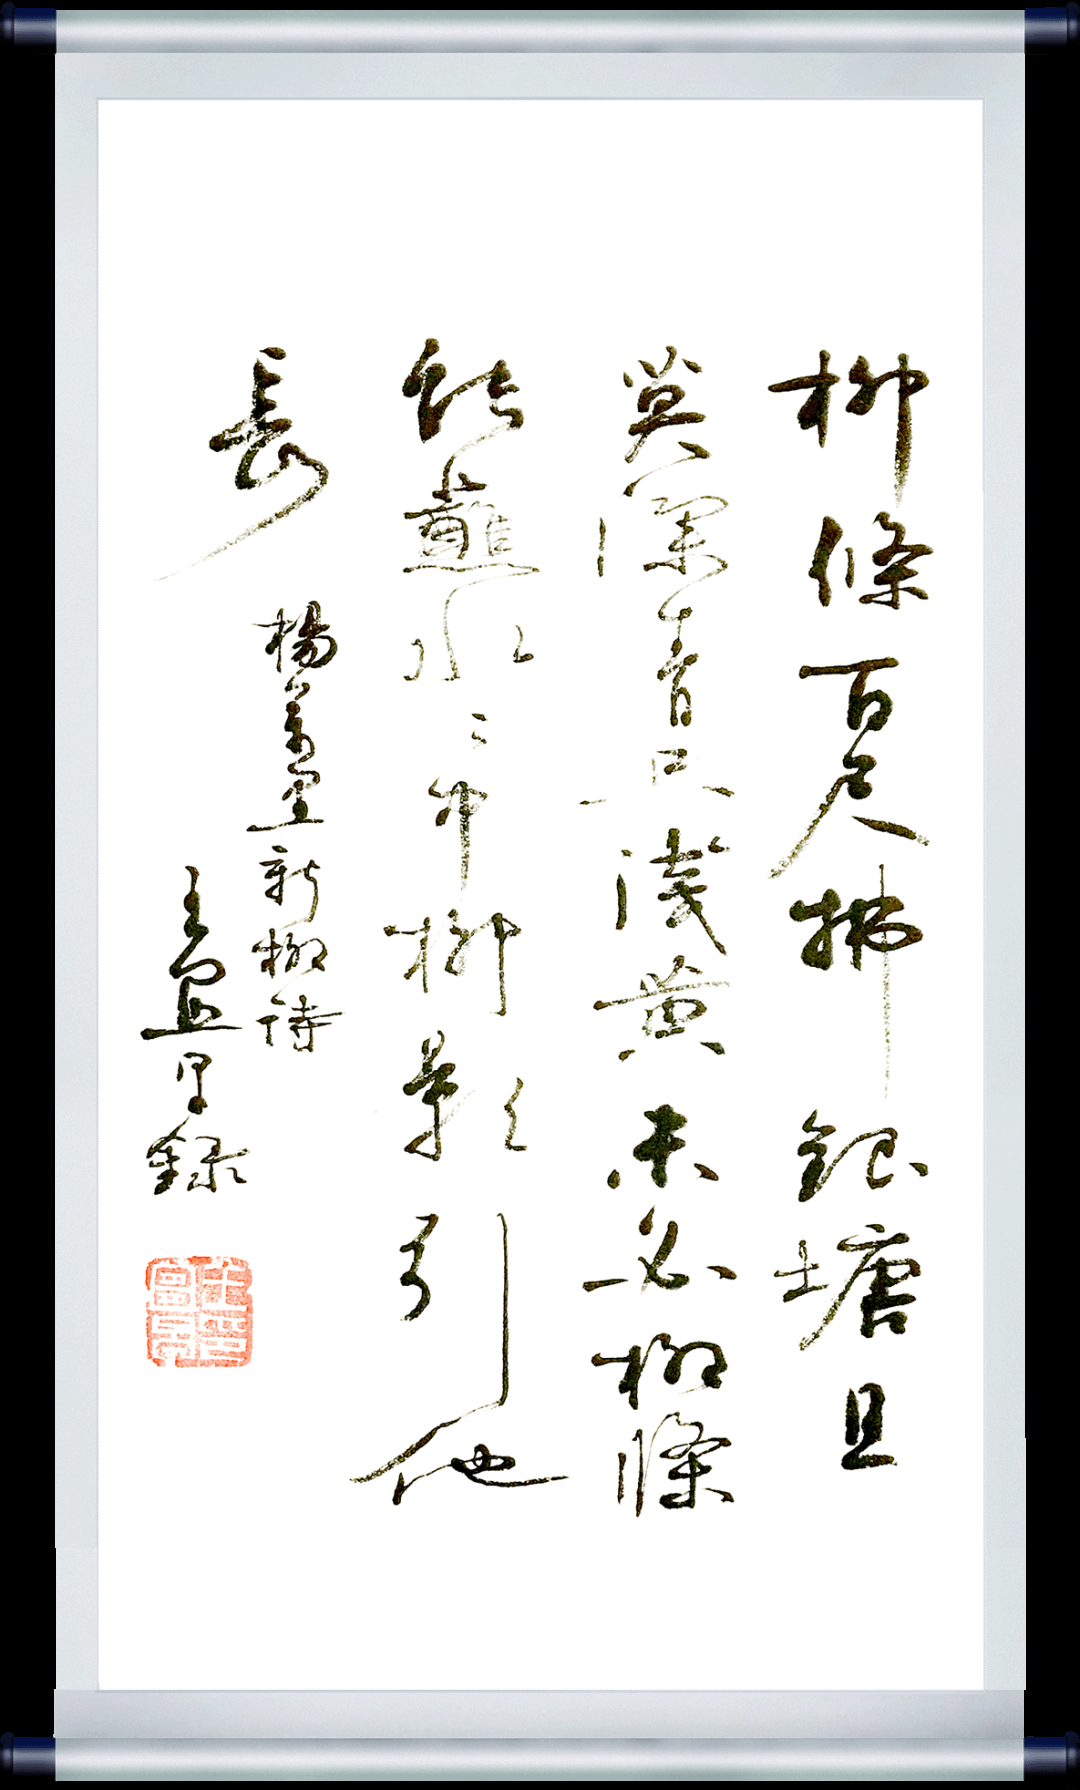 柳條百尺拂銀塘且
莫深青只淺黃未必柳條
能蘸水〻中柳影引他
長
楊萬里新柳詩
錄